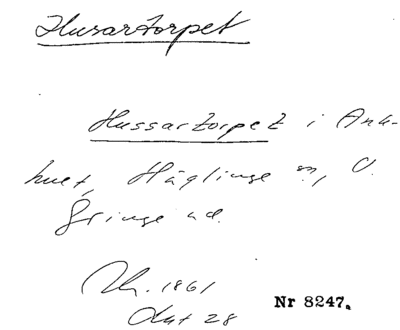 Husartorpet
Hussartorpet i Ank-
huet, Häglinge sn, V.
Göinge hd.
Lh. 1861
Akt 28
Nr 8247.